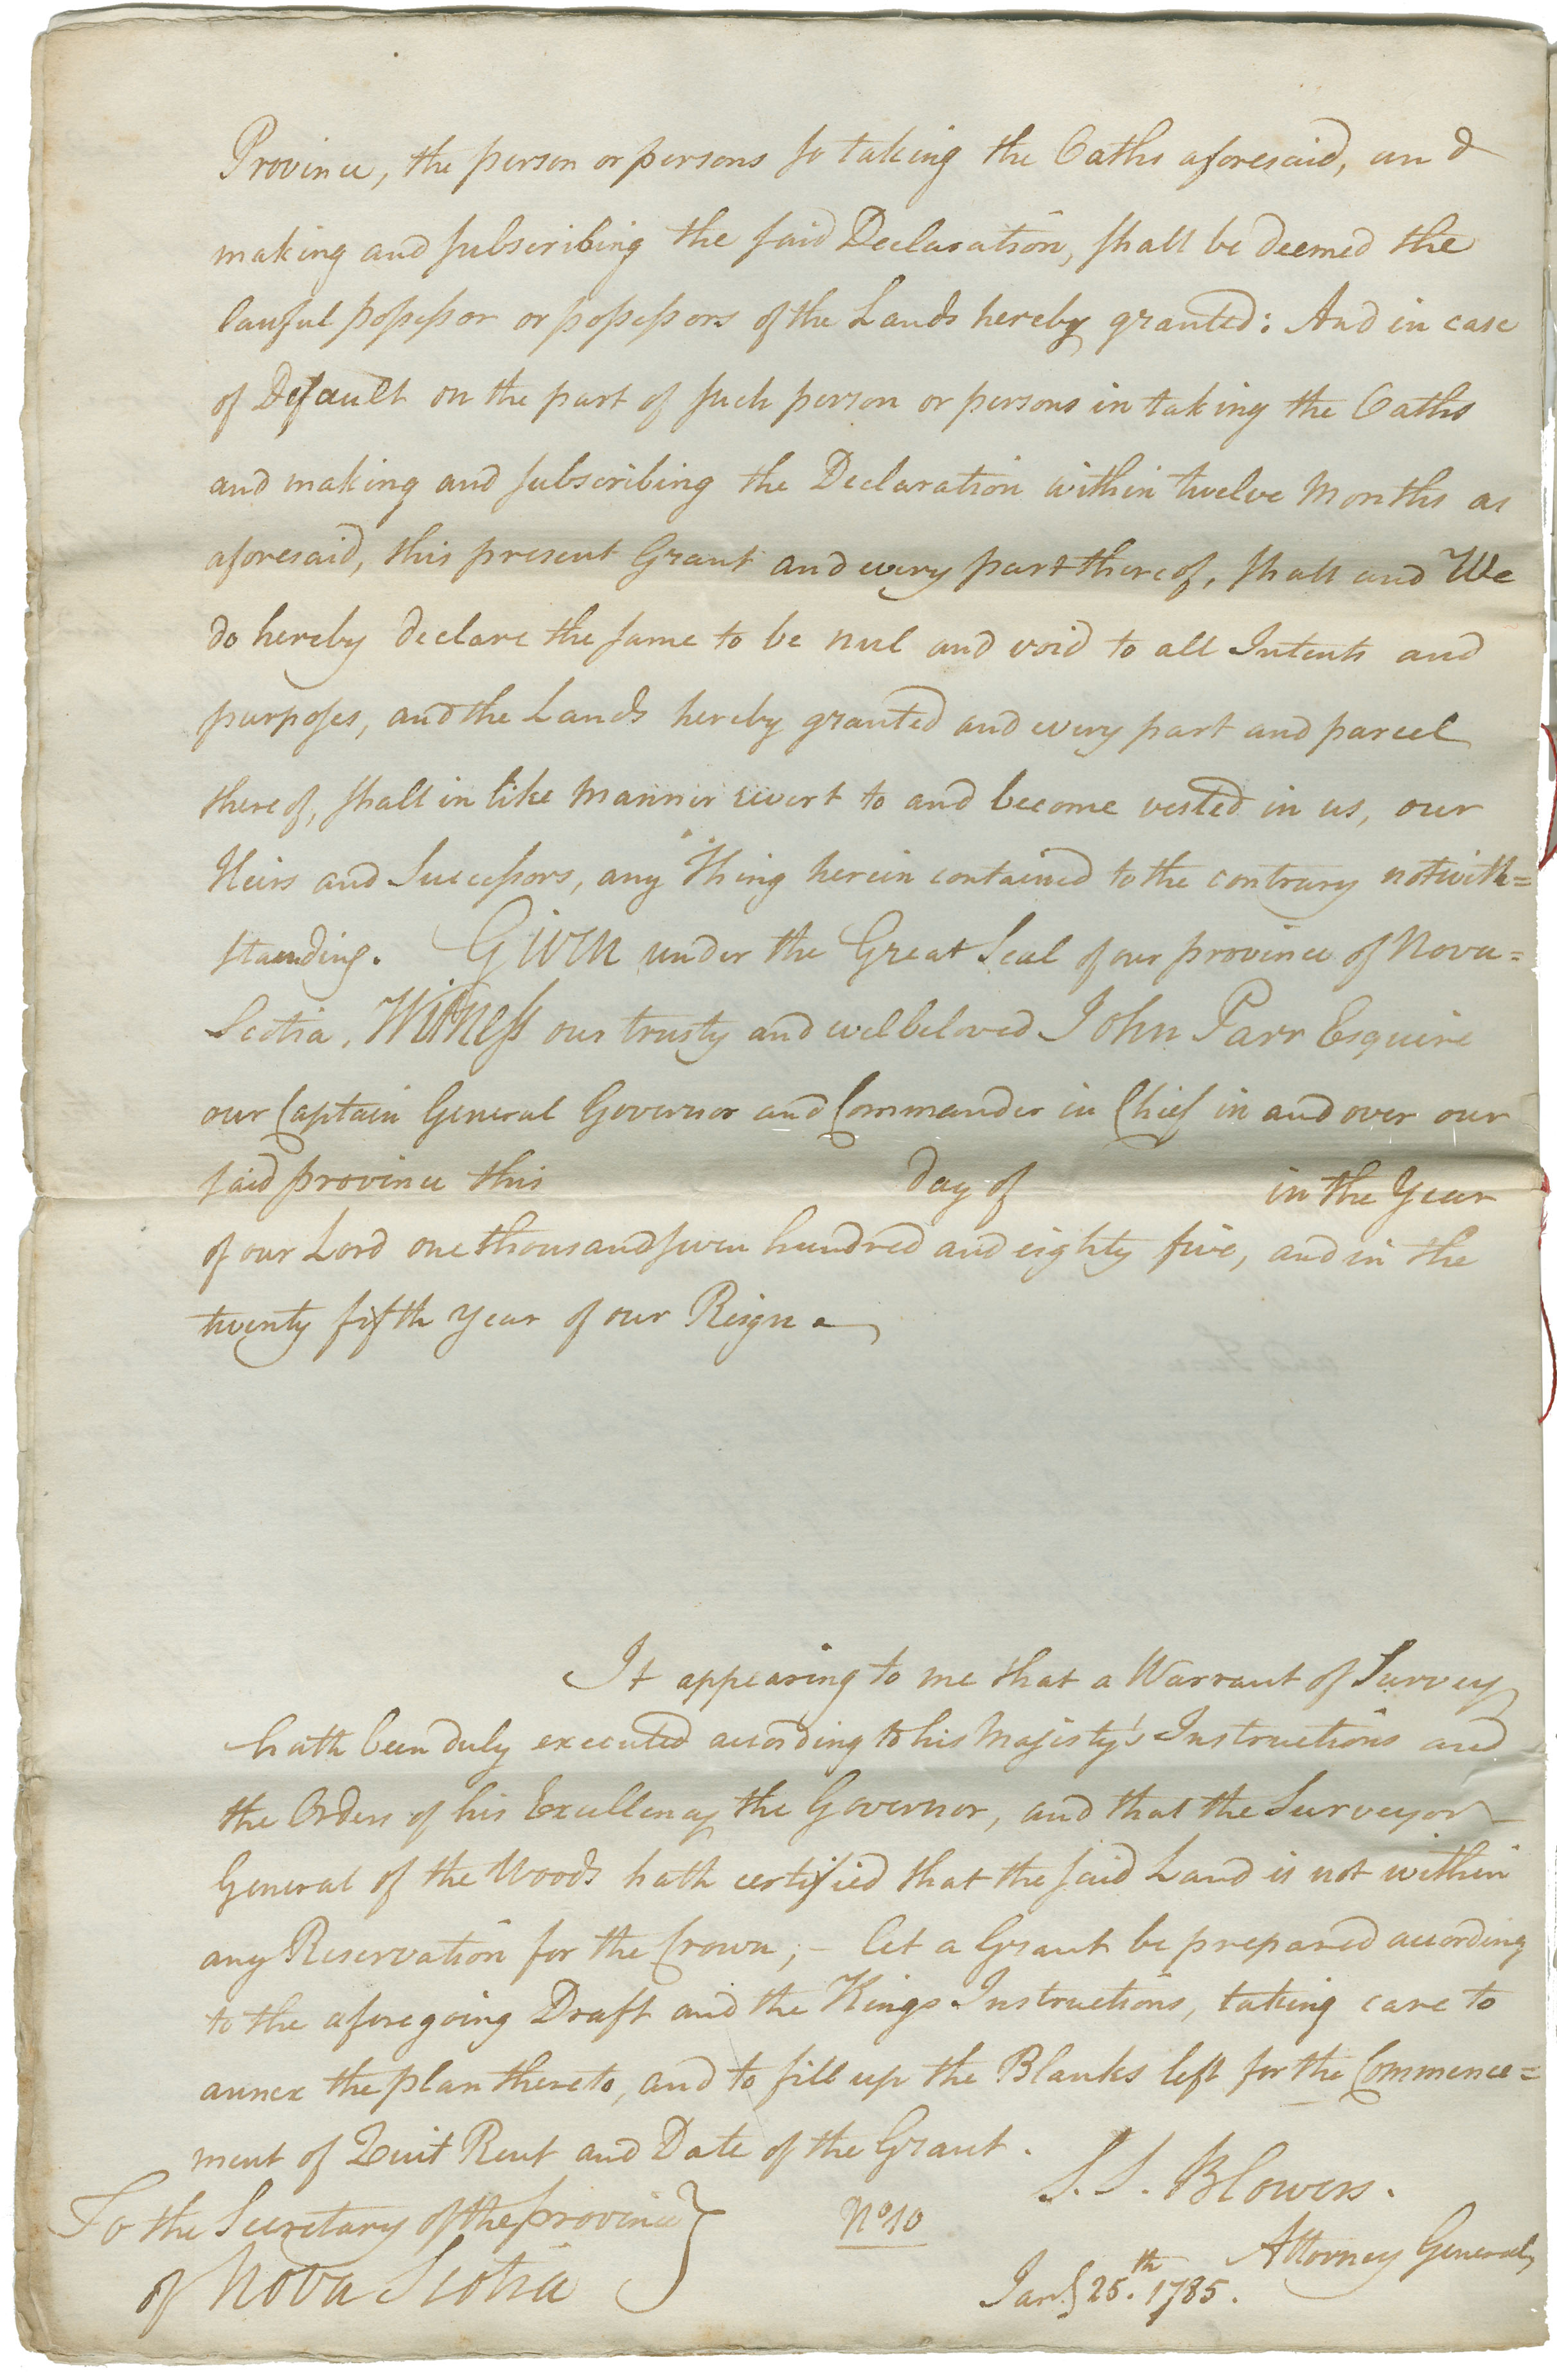 Province, the person or persons so taking the Oaths aforesaid, and
making and subscribing the said Declaration, shall be deemed the
lawful possessor or possessors of the Lands hereby granted: And in case
of Default on the part of such person or persons in taking the Oaths
and making and subscribing the Declaration within twelve Months as
aforesaid, this present Grant and every part thereof, shall and We
do hereby declare the same to be nul and void to all Intents and
purposes, and the Lands hereby granted and every part and parcel
thereof, shall in like Manner revert to and become vested in us, our
Heirs and Successors, any thing herein contained to the contrary notwith=
standing. Given under the Great Seal of our province of Nova=
Scotia. Witness our trusty and welbeloved John Parr Esquire
our Captain General Governor and Commander in Chief in and over our
said province this day of in the Year
of our Lord one thousand seven hundred and eighty five, and in the
twenty fifth Year of our Reign.
It appearing to me that a Warrant of Survey
hath been duly executed according to his Majesty's Instructions and
the Orders of his Excellency the Governor, and that the Surveyor
General of the Woods hath certified that the said Land is not within
any Reservation for the Crown; — let a Grant be prepared according
to the aforegoing Draft and the Kings Instructions, taking care to
annex the plan thereto, and to fill up the Blanks left for the Commence=
ment of Quit Rent and Date of the Grant.
S. S. Blowers.
To the Secretary of the province } No. 10
Attorney General
of Nova Scotia
Jany 25th. 1785.